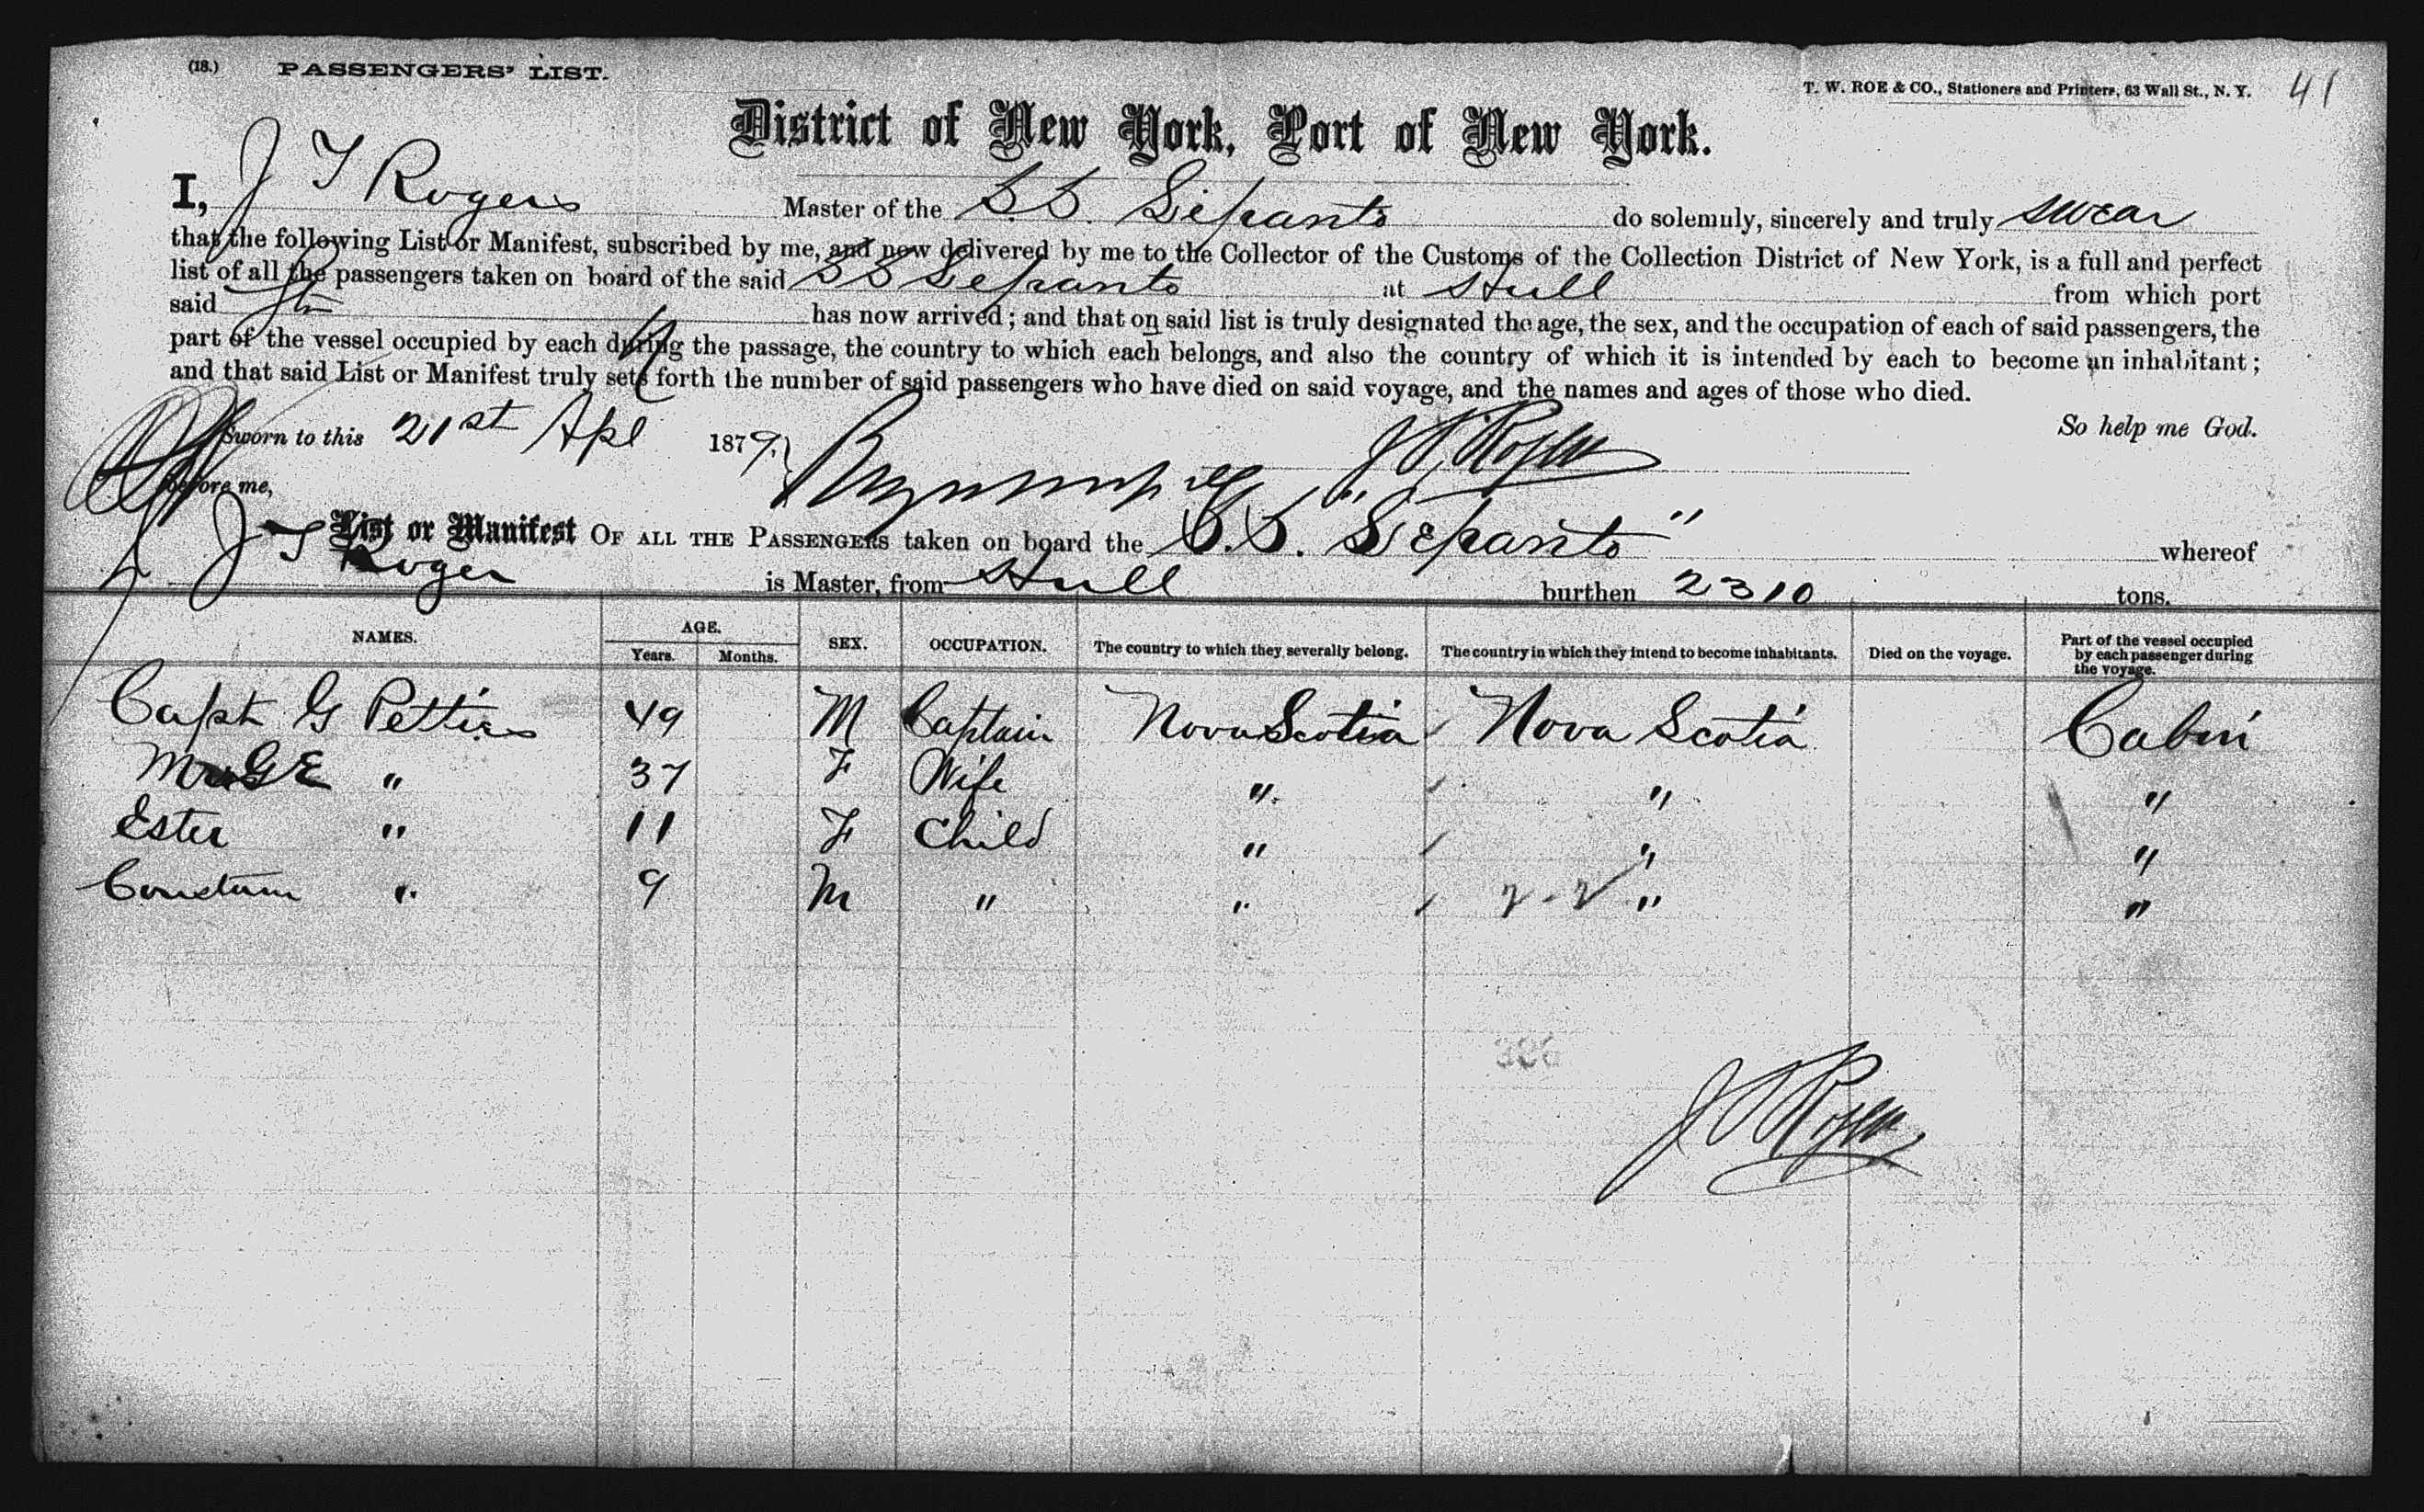 (18.) PASSENGERS' LIST.
T. W. ROE & CO., Stationers and Printers, 63 Wall St., N. Y. 41
District of New York, Port of New York.
I, J T Rogers Master of the S.S. Lepanto do solemnly, sincerely and truly swear
that the following List or Manifest, subscribed by me, and now delivered by me to the Collector of the Customs of the Collection District of New York, is a full and perfect
list of all the passengers taken on board of the said S S Lepanto at Hull from which port
said Str has now arrived; and that on said list is truly designated the age, the sex, and the occupation of each of said passengers, the
part of the vessel occupied by each during the passage, the country to which each belongs, and also the country of which it is intended by each to become an inhabitant;
and that said List or Manifest truly sets forth the number of said passengers who have died on said voyage, and the names and ages of those who died.
So help me God.
Sworn to this 21st Apl 1879. J T Rogers
before me,
List or Manifest OF ALL THE PASSENGERS taken on board the S.S. "Lepanto" whereof
J T Roger is Master, from Hull burthen 2310 tons.
NAMES. AGE. Years. Months. SEX. OCCUPATION. The country to which they severally belong. The country in which they intend to become inhabitants. Died on the voyage. Part of the vessel occupied by each passenger during the voyage.
Capt G Pettis 49 M Captain Nova Scotia Nova Scotia Cabin
Mrs G E " 37 F Wife " " "
Ester " 11 F Child " " "
" 9 M " " " "
326
J T Rogers